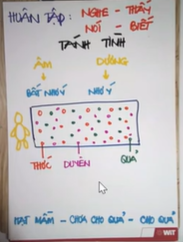 HUÂN TẬP: NGHE - THẤY
NÓI - BIẾT
TÁNH TÌNH
ÂM DƯƠNG
BẤT NHƯ Ý NHƯ Ý
THỨC DUYÊN QUẢ
HẠT MẦM - CHƯA CHO QUẢ - CHO QUẢ